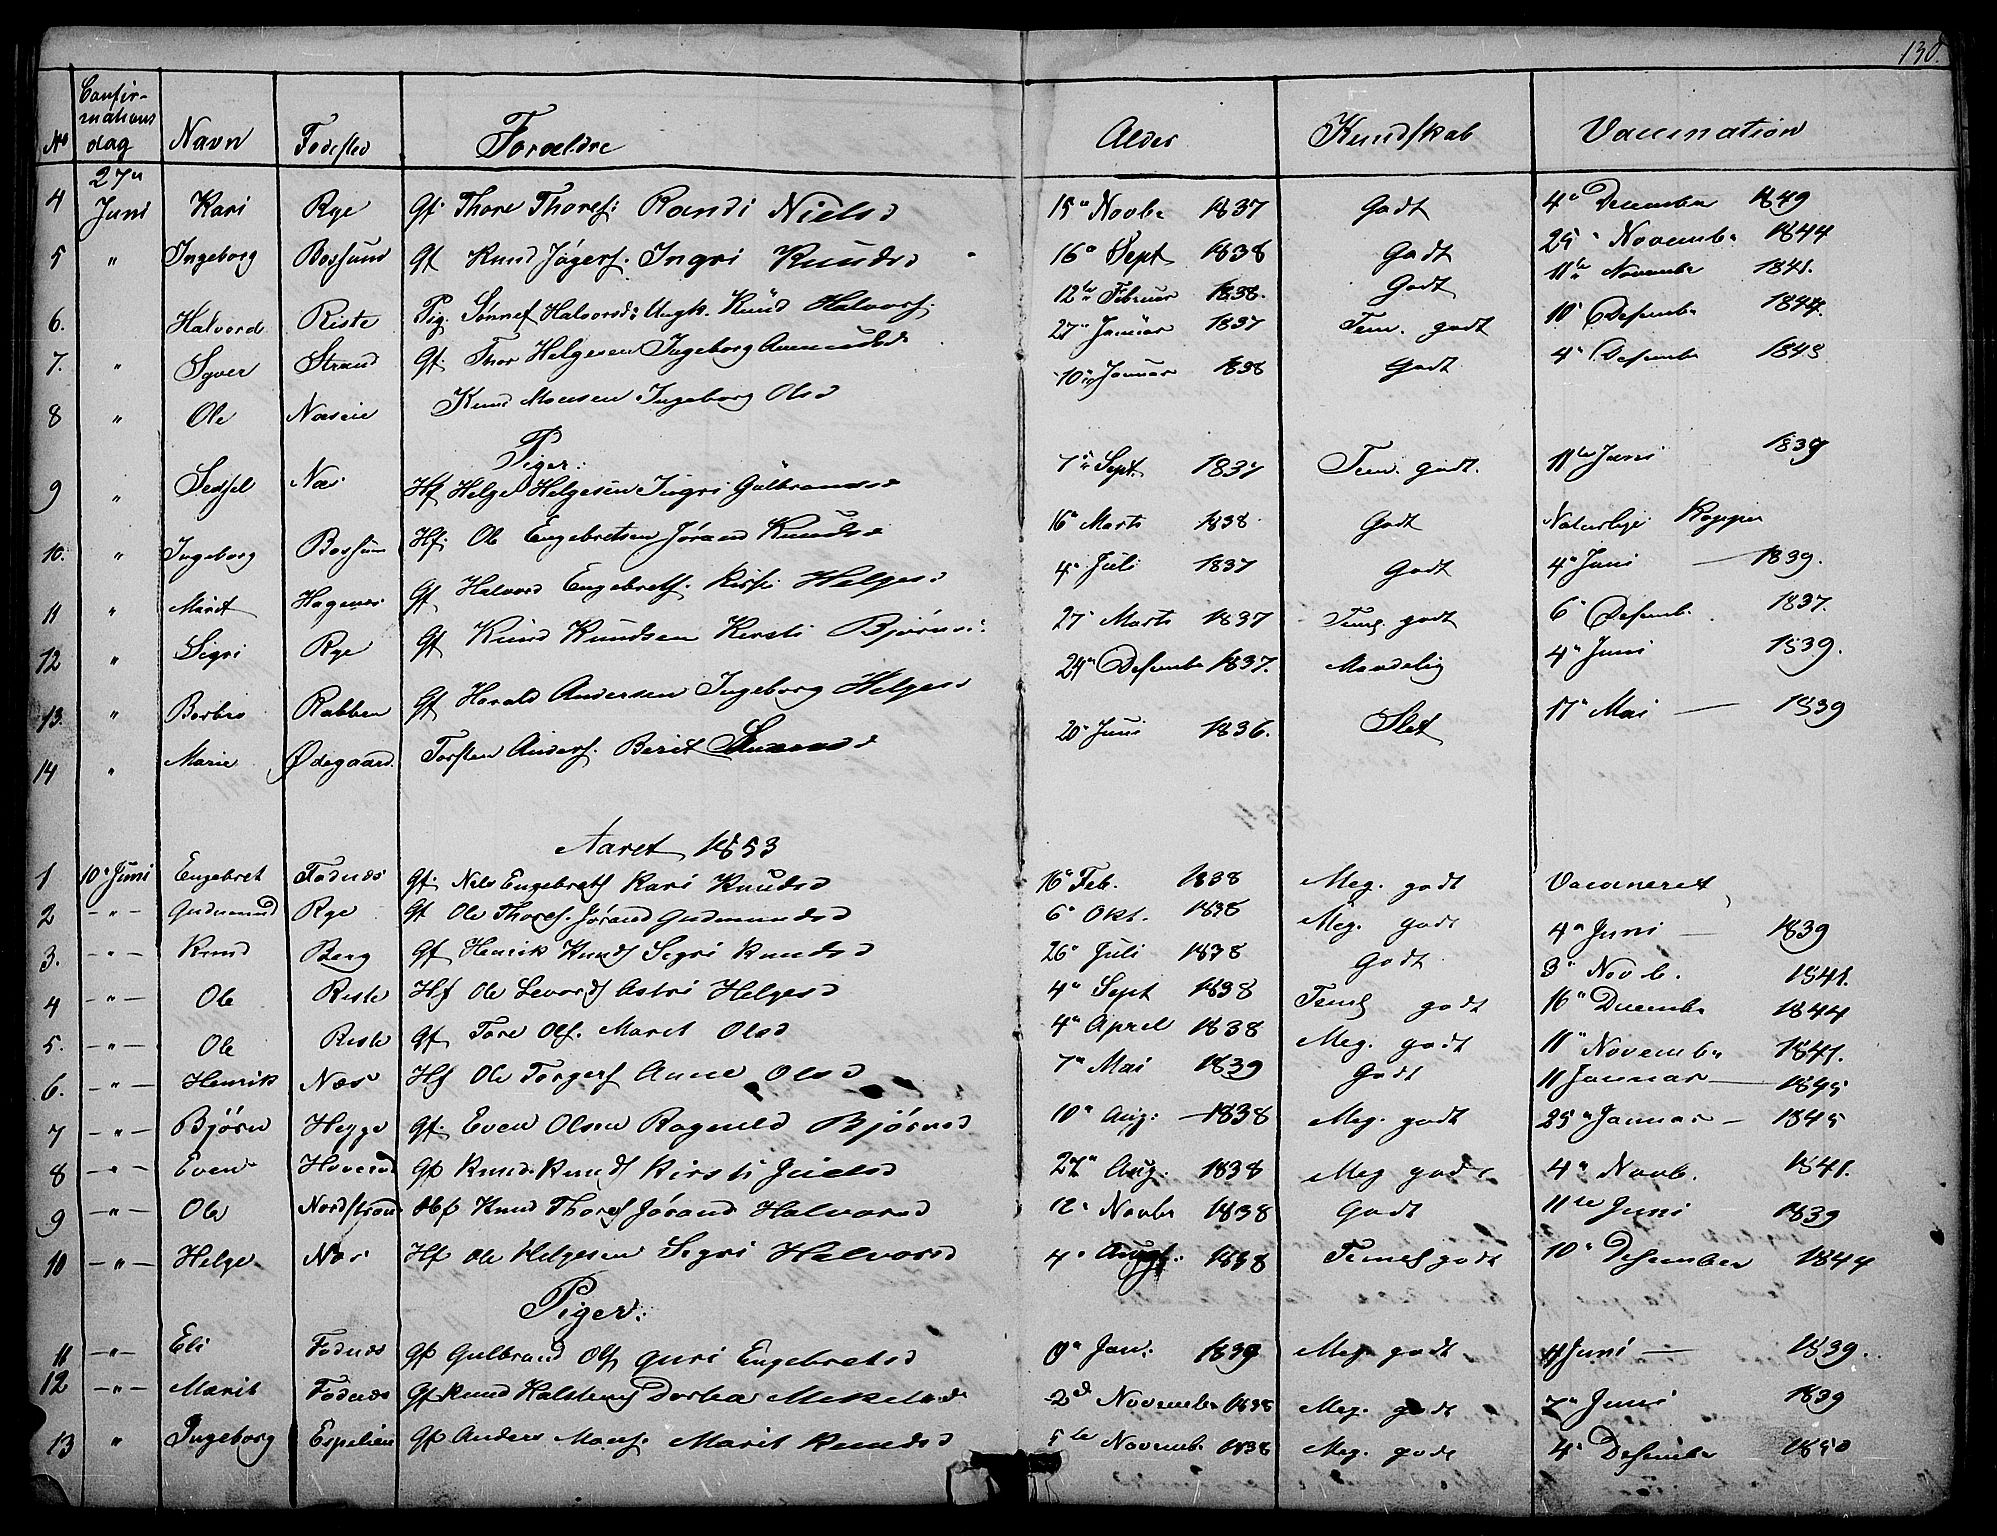 130.
No Confirmations dag Navn Fødested Forældre Alder Kundskab Vaccination
27de
4 Juni Kari Rye Gf Thore Thoresf: Randi Nielsd 15de Novbr 1837 Godt 4de December 1849
5 " Ingeborg Bossund Gf Knud Jøgerf. Ingri Knudsd 16de Sept 1838 Godt 25 Novembr 1844
6. Halvord Riste Pig. Sønnef Halvorsd: Ungk. Knud Halvorsf 12te Februar 1838. Godt 11te Novembr 1841.
7. " Syver Strand Gf Thor Helgesen Ingeborg Amundsd 27de Januar 1837 Tem. godt 10de Desembr 1844.
8 " Ole Næseie Knud Monsen Ingeborg Olsd 10de Januar 1838 Godt 4de Desembr 1843
Piger:
9 " Sedsel Næs Hf Helge Helgesen Ingri Gulbrandsd 7de Sept. 1837 Tem. godt. 11te Juni 1839
10. " Ingeborg Bossund Hf. Ole Engebretsen Jørand Knudsd 16de Marts 1838. Godt Naturlige Kopper
11 " Marit Hagenæs Gf Halvord Engebretsf. Kirsti Helgesd 4de Juli 1837 Godt 4de Juni — 1839.
12 " Sigri Rye Gf Knud Knudsen Kersti Bjørnsd. 27 Marts 1837 Teml godt 6de Desemb. 1837.
13. " Barbro Rabben Gf Harald Andersen Ingeborg Helgesd 24de Desembr 1837. Maadelig 4de Juni 1839.
14 " Marie Ødegaard. Torsten Andersf. Berit 20de Juni 1836. Slet 17de Mai — 1839
Aaret 1853
1 10de Juni Engebret Fodnæs Gf. Nels Engebretsf Kari Knudsd 16de Feb. 1838 Meg. godt Vacsineret
2 — " — Gudmund Rye Gf Ole Thoresf. Jørand Gudmundsd 6de Okt. 1838 Meg. godt 4de Juni — 1839
3. — " — Knud Berg Gf Henrik Knudsf Segri Knudsd 26de Juli 1838 Godt 3de Novb. 1841.
4 — " — Ole Reste Hf Ole Levordsf Astri Helgesd 4de Sept 1838 Teml godt 16de Decembr 1844
5. — " — Ole Reste Gf Tore Olsf. Marit Olsd 4de April 1838 Meg. godt 11de Novembr 1841.
6. — " — Henrik Næs Hf Ole Torgersf Anne Olsd 7de Mai 1839 Godt 11 Januar — 1845
7 — " — Bjørn Hegge Gf. Even Olsen Ragnild Bjørnsd 10de Aug: 1838 Meg. godt 25de Januar — 1845
8 — " — Even Hovend Gf Knud Knudsf Kirsti Juelsd 27de Aug. 1838 Meg godt 4de Novb. 1841.
9 — " — Ole Nordstrand Hf Knud Thoresf Jørand Halvorsd 12te Novbr 1838 Godt 11te Juni 1839
10 — " — Helge Næs Hf Ole Helgesen Segri Halvorsd 4de Augst. 1838 Temel godt 10de Desember 1844
Piger:
11 — " — Eli Fodnæs Gf Gulbrand Olsf Guri Engebretsd Jan: 1839 Meg godt 4 Juni — 1839.
12 — " — Marit Fodnæs Gf Knud Halstensf Dorthea Mekelsd 2d Novembr 1838 Meg. godt 7de Juni 1839
13 " Ingeborg Espelien Gf Anders Monsf: Marit Knudsd 5te Novembr 1838 Meg. godt 4de Desembr 1850